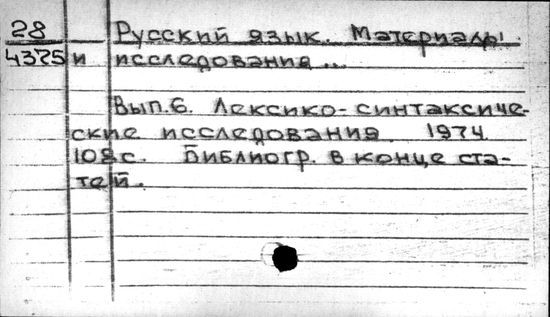 28 Русский язык. Материалы
4375 и исследования...
Вып. 6. Лексико-синтаксиче-
ские исследования. 1974.
108с. Библиогр. в конце ста-
тей.